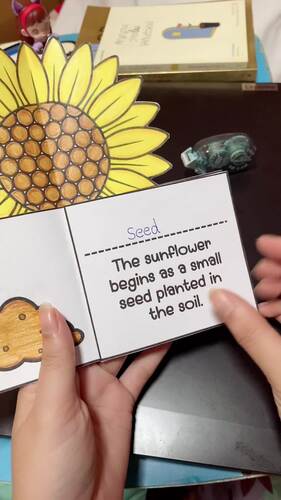 Seed
The sunflower
begins as a small
seed planted in
the soil.